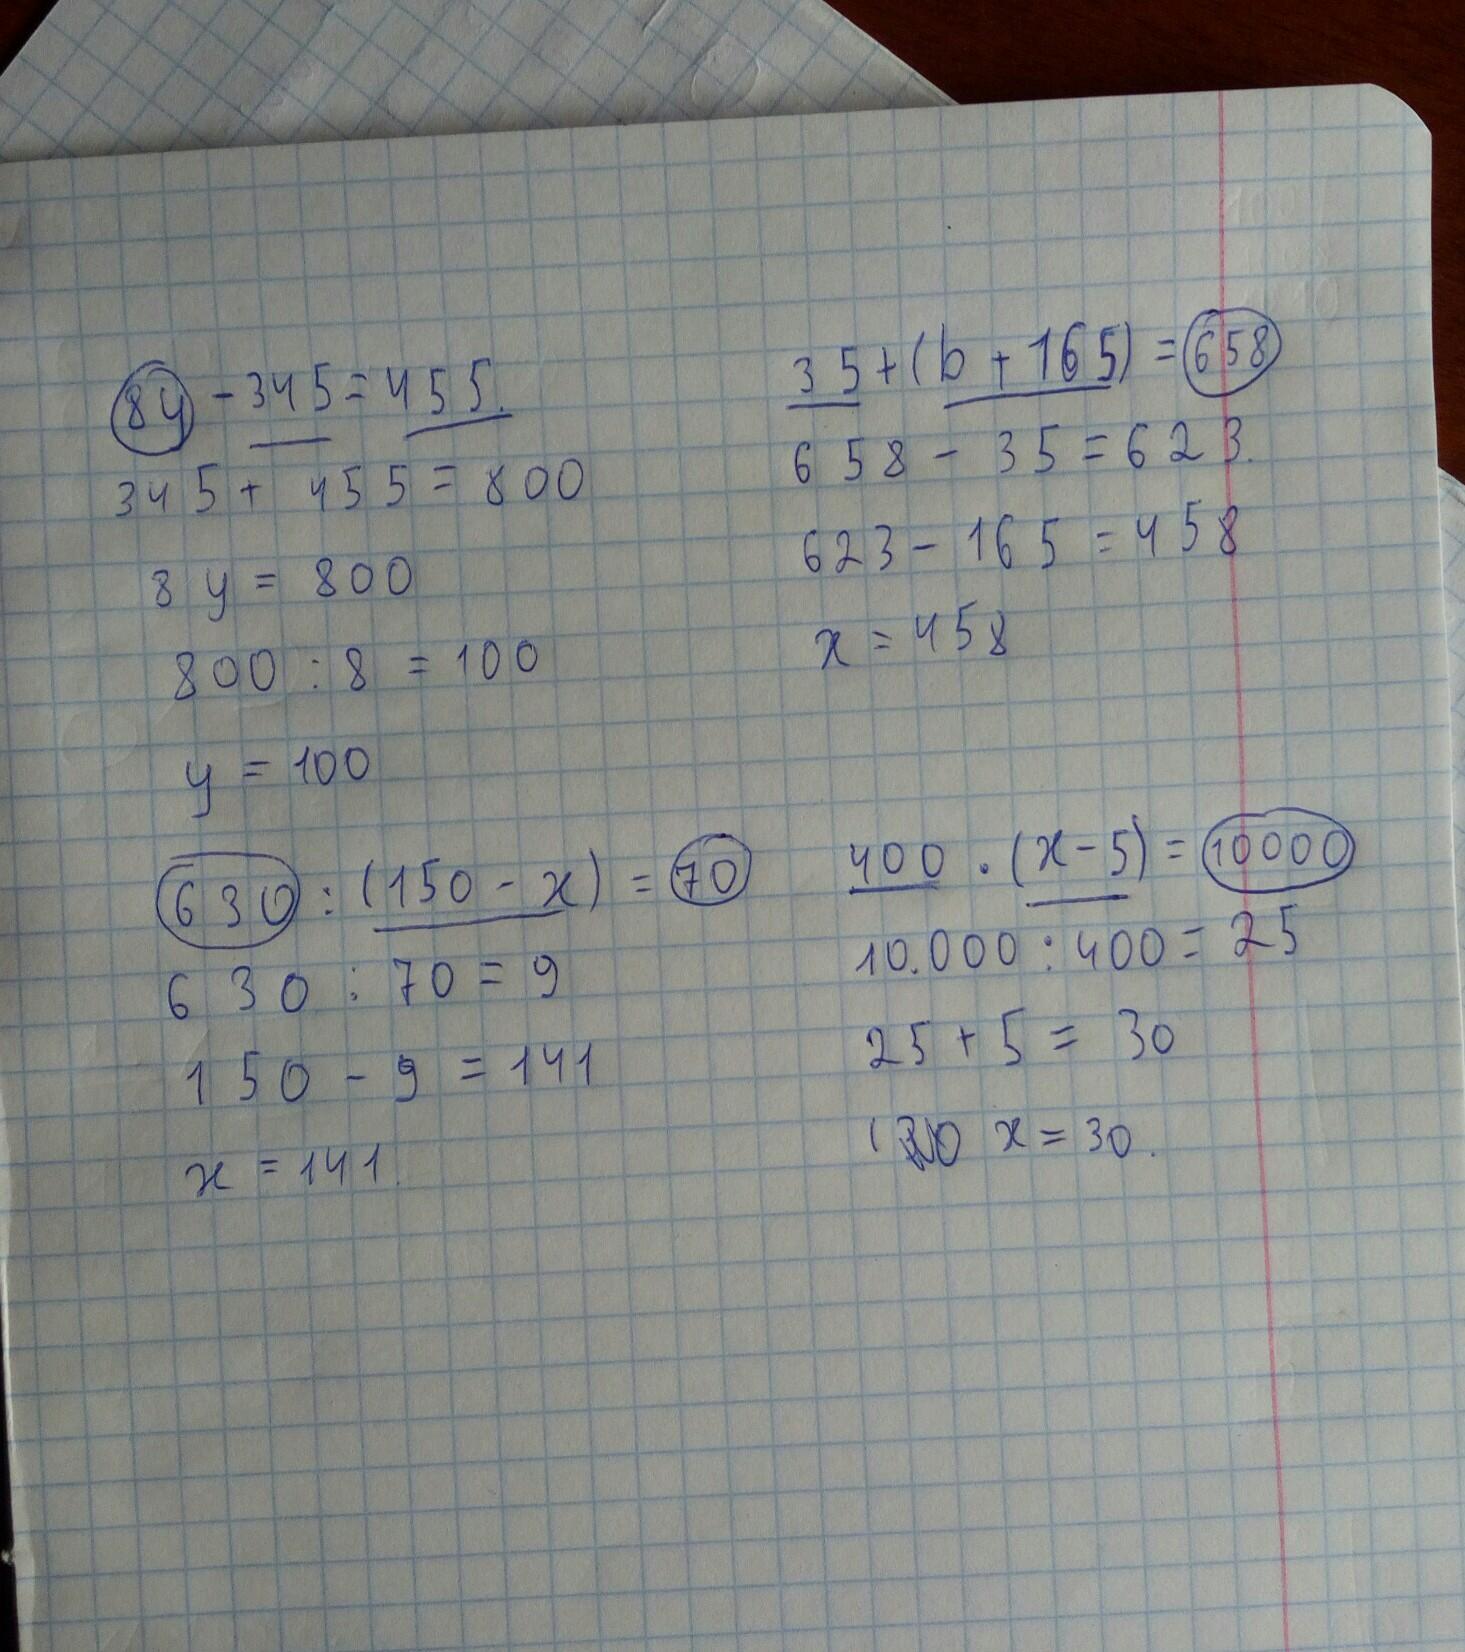 8y - 345 = 455.
345 + 455 = 800
8y = 800
800 : 8 = 100
y = 100
35 + (b + 165) = 658
658 - 35 = 623.
623 - 165 = 458
x = 458
630 : (150 - x) = 70
630 : 70 = 9
150 - 9 = 141
x = 141.
400 · (x - 5) = 10000
10.000 : 400 = 25
25 + 5 = 30
x = 30.